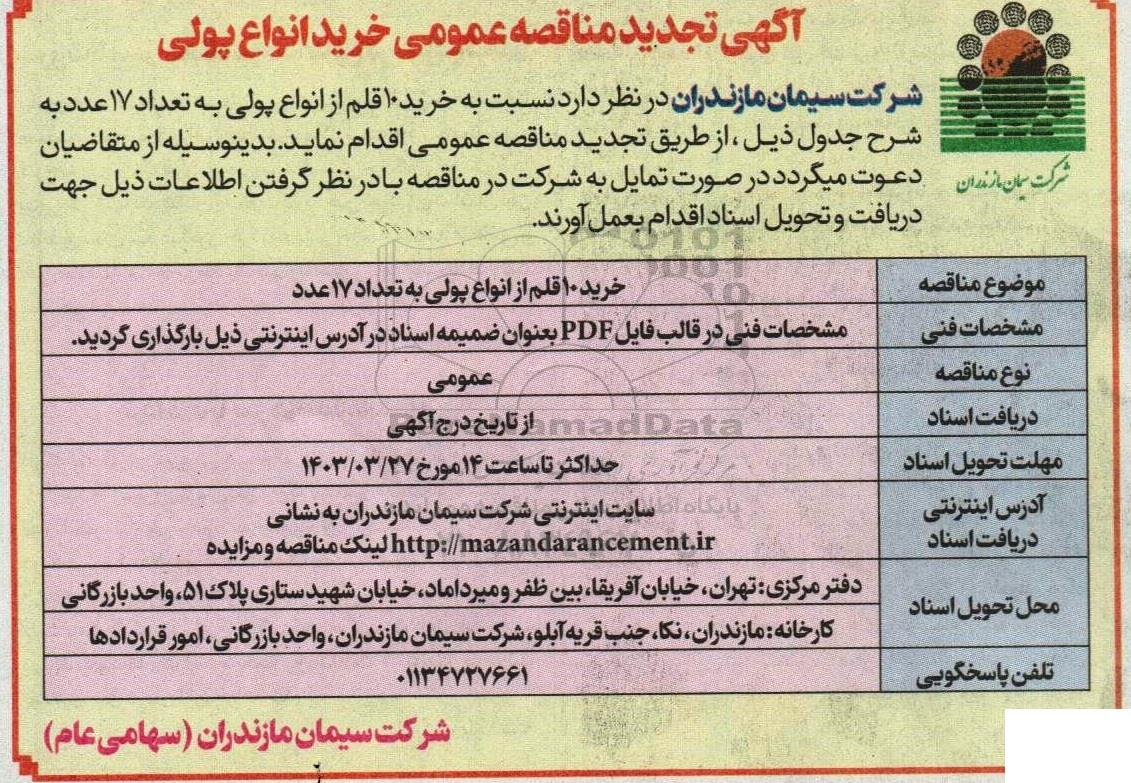 آگهی تجدید مناقصه عمومی خرید انواع پولی
شرکت سیمان مازندران
شرکت سیمان مازندران در نظر دارد نسبت به خرید ۱۰ قلم از انواع پولی به تعداد ۱۷ عدد به
شرح جدول ذیل ، از طریق تجدید مناقصه عمومی اقدام نماید. بدینوسیله از متقاضیان
دعوت میگردد در صورت تمایل به شرکت در مناقصه با در نظر گرفتن اطلاعات ذیل جهت
دریافت و تحویل اسناد اقدام بعمل آورند.
موضوع مناقصه خرید ۱۰ قلم از انواع پولی به تعداد ۱۷ عدد
مشخصات فنی مشخصات فنی در قالب فایل PDF بعنوان ضمیمه اسناد در آدرس اینترنتی ذیل بارگذاری گردید.
نوع مناقصه عمومی
دریافت اسناد از تاریخ درج آگهی
مهلت تحویل اسناد حداکثر تا ساعت ۱۴ مورخ ۱۴۰۳/۰۳/۲۷
آدرس اینترنتی سایت اینترنتی شرکت سیمان مازندران به نشانی
دریافت اسناد http://mazandarancement.ir لینک مناقصه و مزایده
محل تحویل اسناد دفتر مرکزی : تهران ، خیابان آفریقا، بین ظفر و میرداماد، خیابان شهید ستاری پلاک ۵۱، واحد بازرگانی
کارخانه : مازندران ، نکا، جنب قریه آبلو، شرکت سیمان مازندران، واحد بازرگانی ، امور قراردادها
تلفن پاسخگویی ۰۱۱۳۴۷۲۷۶۶۱
شرکت سیمان مازندران (سهامی عام)